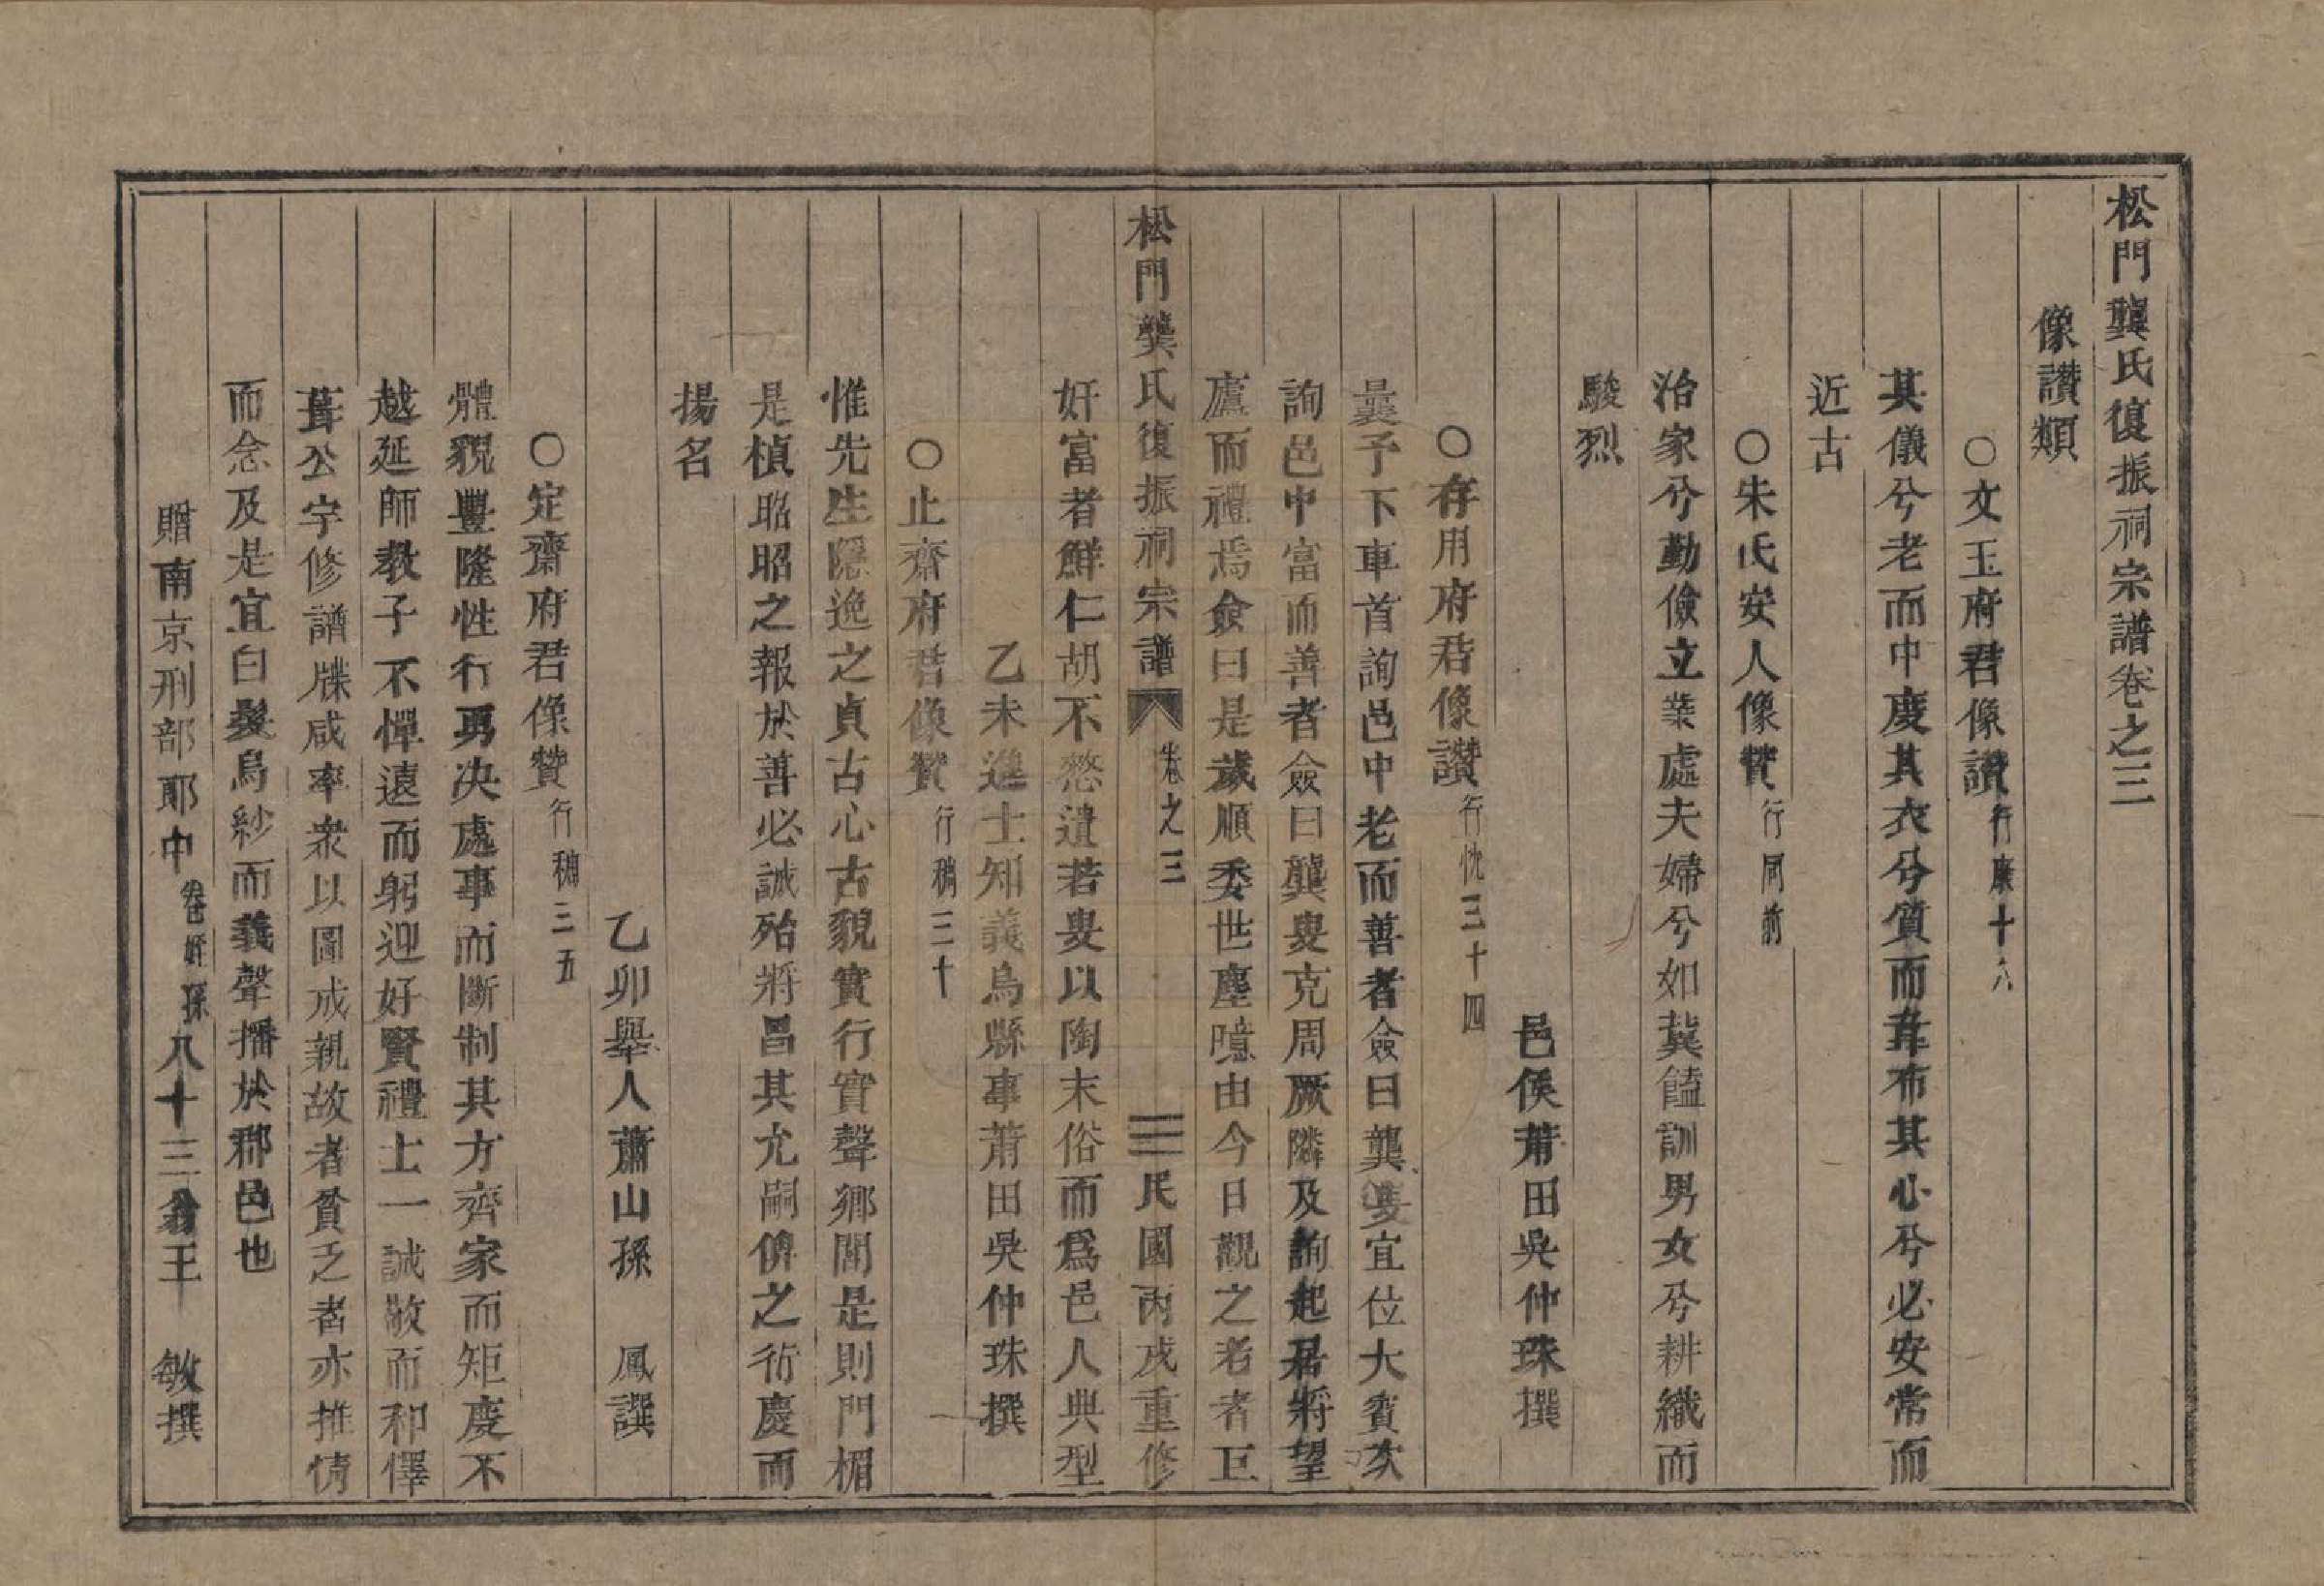 松門龔氏復振祠宗譜卷之三
像讚類
○文玉府君像讚行康十八
其儀兮老而中慶其衣兮質而韋布其心兮必安常而
近古
○朱氏安人像贊行同前
治家兮勤儉立業處夫婦兮如冀饁訓男女兮耕織而
駿烈
邑侯莆田吳仲珠撰
○存用府君像讚行忱三十四
曩予下車首詢邑中老而善者僉曰龔叟宜位大賓次
詢邑中富而善者僉曰龔叟克周厥隣及詢起居將望
廬而禮焉僉曰是歲順委世塵噫由今日觀之老者巨
松門龔氏復振祠宗譜 卷之三 三 民國丙戌重修
奸富者鮮仁胡不憖遺若叟以陶末俗而爲邑人典型
乙未進士知義烏縣事莆田吳仲珠撰
○止齋府君像贊行稱三十
惟先生隱逸之貞古心古貌實行實聲鄉閭是則門楣
是楨昭昭之報於善必誠殆將昌其尤嗣俾之衍慶而
揚名
乙卯舉人蕭山孫 鳳譔
○定齋府君像贊行稱三五
體貌豐隆性行勇决處事而斷制其方齊家而矩度不
越延師教子不憚遠而躬迎好賢禮士一誠敬而和懌
葺公宇修譜牒咸率衆以圖成親故者貧乏者亦推情
而念及是宜白髮烏紗而義聲播於郡邑也
贈南京刑部郎中 孫八十三翁王 敏撰